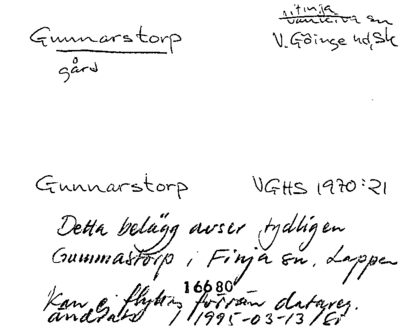 Gunnarstorp
gård
Finja
Vankiva sn
V. Göinge hd, Sk
Gunnarstorp VGHS 1970:21
Detta belägg avser tydligen
Gummastorp i Finja sn. Lappen
16680
kan ej flyttas förrän datareg.
ändrats / 1995-03-13 /